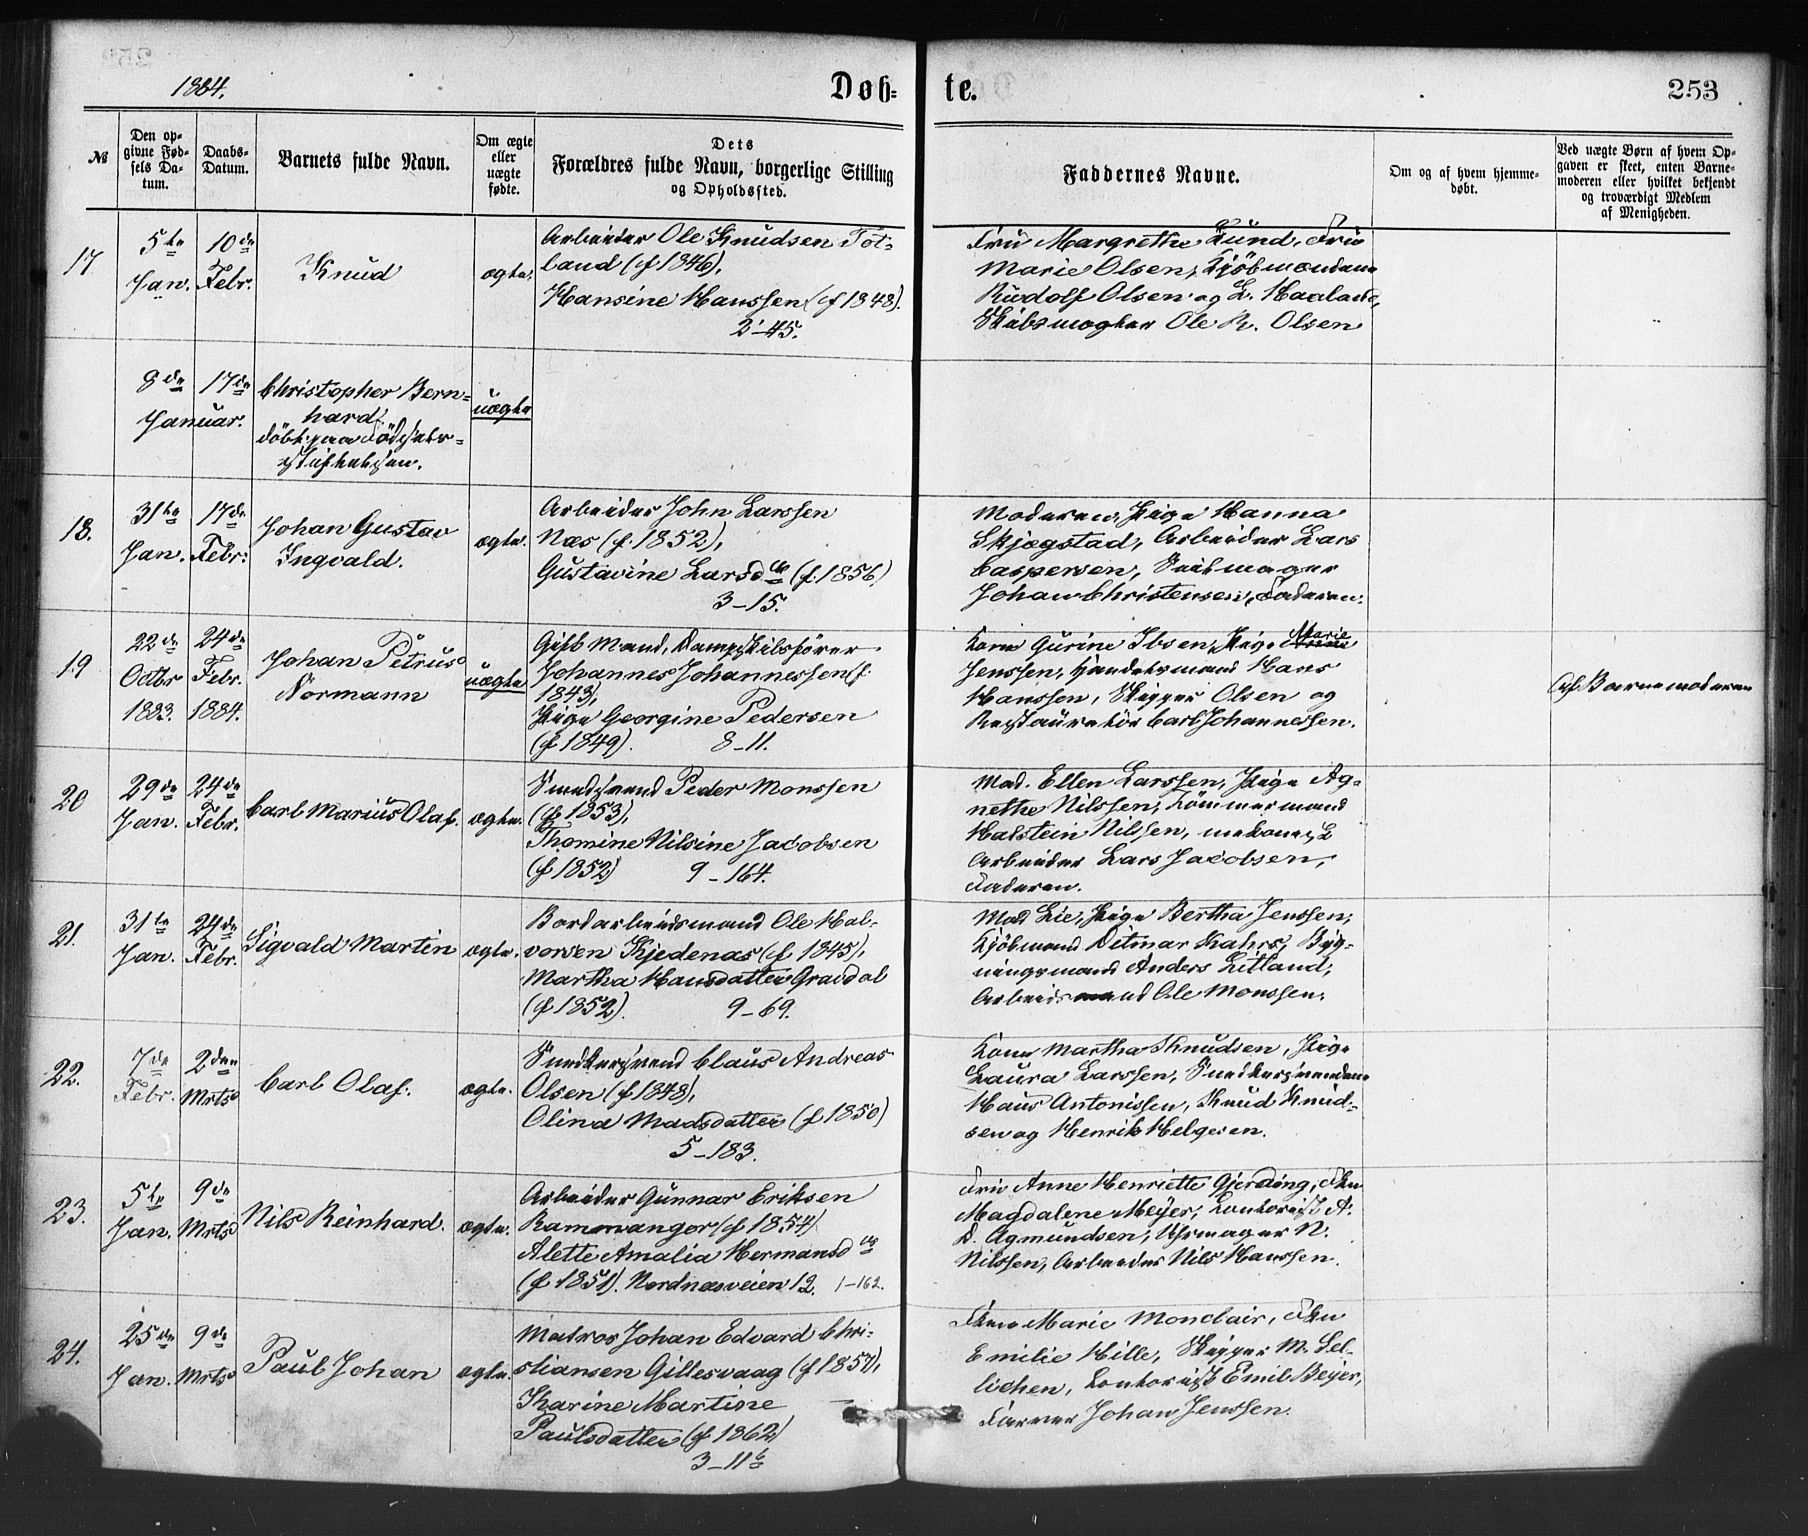 1884.
Døb-
te.
253
№
Den op-
givne Fød-
sels Da-
tum.
Daabs-
Datum.
Barnets fulde Navn.
Om ægte
eller
uægte
fødte.
Dets
Forældres fulde Navn, borgerlige Stilling
og Opholdssted.
Faddernes Navne.
Om og af hvem hjemme-
døbt.
Ved uægte Børn af hvem Op-
gaven er skeet, enten Barne-
moderen eller hvilket bekjendt
og troværdigt Medlem
af Menigheden.
17
5te
Jan.
10de
Febr.
Knud
ægte.
Arbeider Ole Knudsen Tot-
land (f 1846),
Hansine Hanssen (f 1848).
2-45.
Fru Margrethe Lund, Fru
Marie Olsen, Kjöbmændene
Rudolf Olsen og L. Haaland,
Skibsmægler Ole R. Olsen
8de
17de
Januar.
Christopher Bern-
hard,
döbt paa Födsels-
stiftelsen.
uægte
18.
31te
Jan.
17de
Febr.
Johan Gustav
Ingvald.
ægte.
Arbeider John Larssen
Næs (f. 1852),
Gustavine Larsdtr (f. 1856)
3-15.
Moderen, Pige Hanna
Skjægstad, Arbeider Lars
Caspersen, Seilmager
Johan Christensen, Faderen.
19
22de
Octbr
1883.
24de
Febr.
1884.
Johan Petrus
Normann
uægte
Gift Mand, Dampskibsförer
Johannes Johannessen (f.
1843),
Pige Georgine Pedersen
(f 1849). 8-11.
Kone Gurine Ibsen, Pige Marie
Jenssen, Handelsmand Hans
Hanssen, Skipper Olsen og
Restauratör Carl Johannessen.
Af Barnemoderen
20
29de
Jan.
24de
Febr.
Carl Marius Olaf.
ægte.
Smedsvend Peder Monssen
(f 1853),
Thomine Nilsine Jacobsen
(f 1852) 9-164.
Mad. Ellen Larssen, Pige Ag-
nethe Nilssen, Tömmermand
Halstein Nilsen,
Arbeider Lars Jacobsen,
Faderen.
21.
31te
Jan.
24de
Febr.
Sigvald Martin
ægte.
Bordarbeidsmand Ole Hal-
vorsen Kjedenæs (f 1845),
Martha Hansdatter Gravdal
(f 1852). 9-69.
Mad Lie, Pige Bertha Jenssen,
Kjöbmand Ditmar Kahrs, Byg-
ningsmand Anders Litland,
Arbeidsmand Ole Monssen.
22.
7de
Febr.
2den
Mrts
Carl Olaf.
ægte.
Snedkersvend Claus Andreas
Olsen (f 1848),
Olina Madsdatter (f 1850)
5-183.
Kone Martha Knudsen, Pige
Laura Larssen, Snedkersvendene
Hans Antonissen, Knud Knud-
sen og Henrik Helgesen.
23.
5te
Jan.
9de
Mrts
Nils Reinhard.
ægte.
Arbeider Gunnar Eriksen
Ramnanger (f 1854)
Alette Amalia Hermansdtr
(f 1851). Nordnæsveien 12. 1-162.
Fru Anne Henriette Gjerding, Frk
Magdalene Meyer, Kontorist A.
D. Agmundsen, Uhrmager N.
Nilssen, Arbeider Nils Hanssen.
24.
25de
Jan.
9de
Mrts
Paul Johan
ægte.
Matros Johan Edvard Chri-
stiansen Gillesvaag (f 1857),
Karine Martine
Paulsdatter (f 1862)
3-11b
Frk Marie Monclair, Frk
Emilie Hille, Skipper M. Sel-
lichen, Kontorist Emil Beyer,
Farver Johan Jenssen.